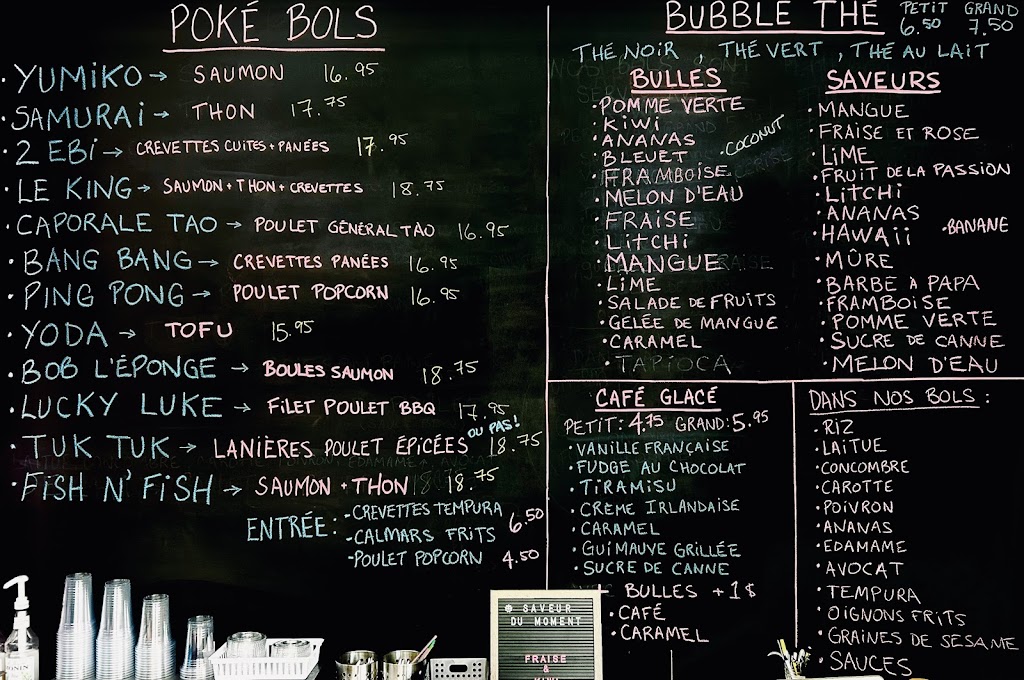 POKÉ BOLS
· YUMiKO → SAUMON 16.95
· SAMURAi → THON 17.75
· 2 EBi → CREVETTES CUITES + PANÉES 17.95
· LE KING → SAUMON + THON + CREVETTES 18.75
· CAPORALE TAO → POULET GÉNÉRAL TAO 16.95
· BANG BANG → CREVETTES PANÉES 16.95
· PING PONG → POULET POPCORN 16.95
· YODA → TOFU 15.95
· BOB L'ÉPONGE → BOULES SAUMON 18.75
· LUCKY LUKE → FiLET POULET BBQ 17.95
OU PAS!
· TUK TUK → LANIÈRES POULET ÉPICÉES 18.75
· FiSH N' FiSH → SAUMON + THON 18.75
ENTRÉE: - CREVETTES TEMPURA
- CALMARS FRITS 6.50
- POULET POPCORN 4.50
BUBBLE THÉ PETIT GRAND
6.50 7.50
THÉ NOIR , THÉ VERT , THÉ AU LAIT
BULLES
· POMME VERTE
· KIWI
· ANANAS
· COCONUT
· BLEUET
· FRAMBOISE
· MELON D'EAU
· FRAISE
· LITCHI
· MANGUE
· LIME
· SALADE DE FRUITS
· GELÉE DE MANGUE
· CARAMEL
· TAPIOCA
SAVEURS
· MANGUE
· FRAISE ET ROSE
· LIME
· FRUIT DE LA PASSION
· LITCHI
· ANANAS
· HAWAII · BANANE
· MÛRE
· BARBE À PAPA
· FRAMBOISE
· POMME VERTE
· SUCRE DE CANNE
· MELON D'EAU
CAFÉ GLACÉ
PETIT: 4.75 GRAND: 5.95
· VANILLE FRANÇAISE
· FUDGE AU CHOCOLAT
· TIRAMISU
· CRÈME IRLANDAISE
· CARAMEL
· GUIMAUVE GRILLÉE
· SUCRE DE CANNE
+ BULLES +1$
· CAFÉ
· CARAMEL
DANS NOS BOLS :
· RIZ
· LAITUE
· CONCOMBRE
· CAROTTE
· POIVRON
· ANANAS
· EDAMAME
· AVOCAT
· TEMPURA
· OIGNONS FRITS
· GRAINES DE SÉSAME
· SAUCES
SAVEUR
DU MOMENT
FRAISE
&